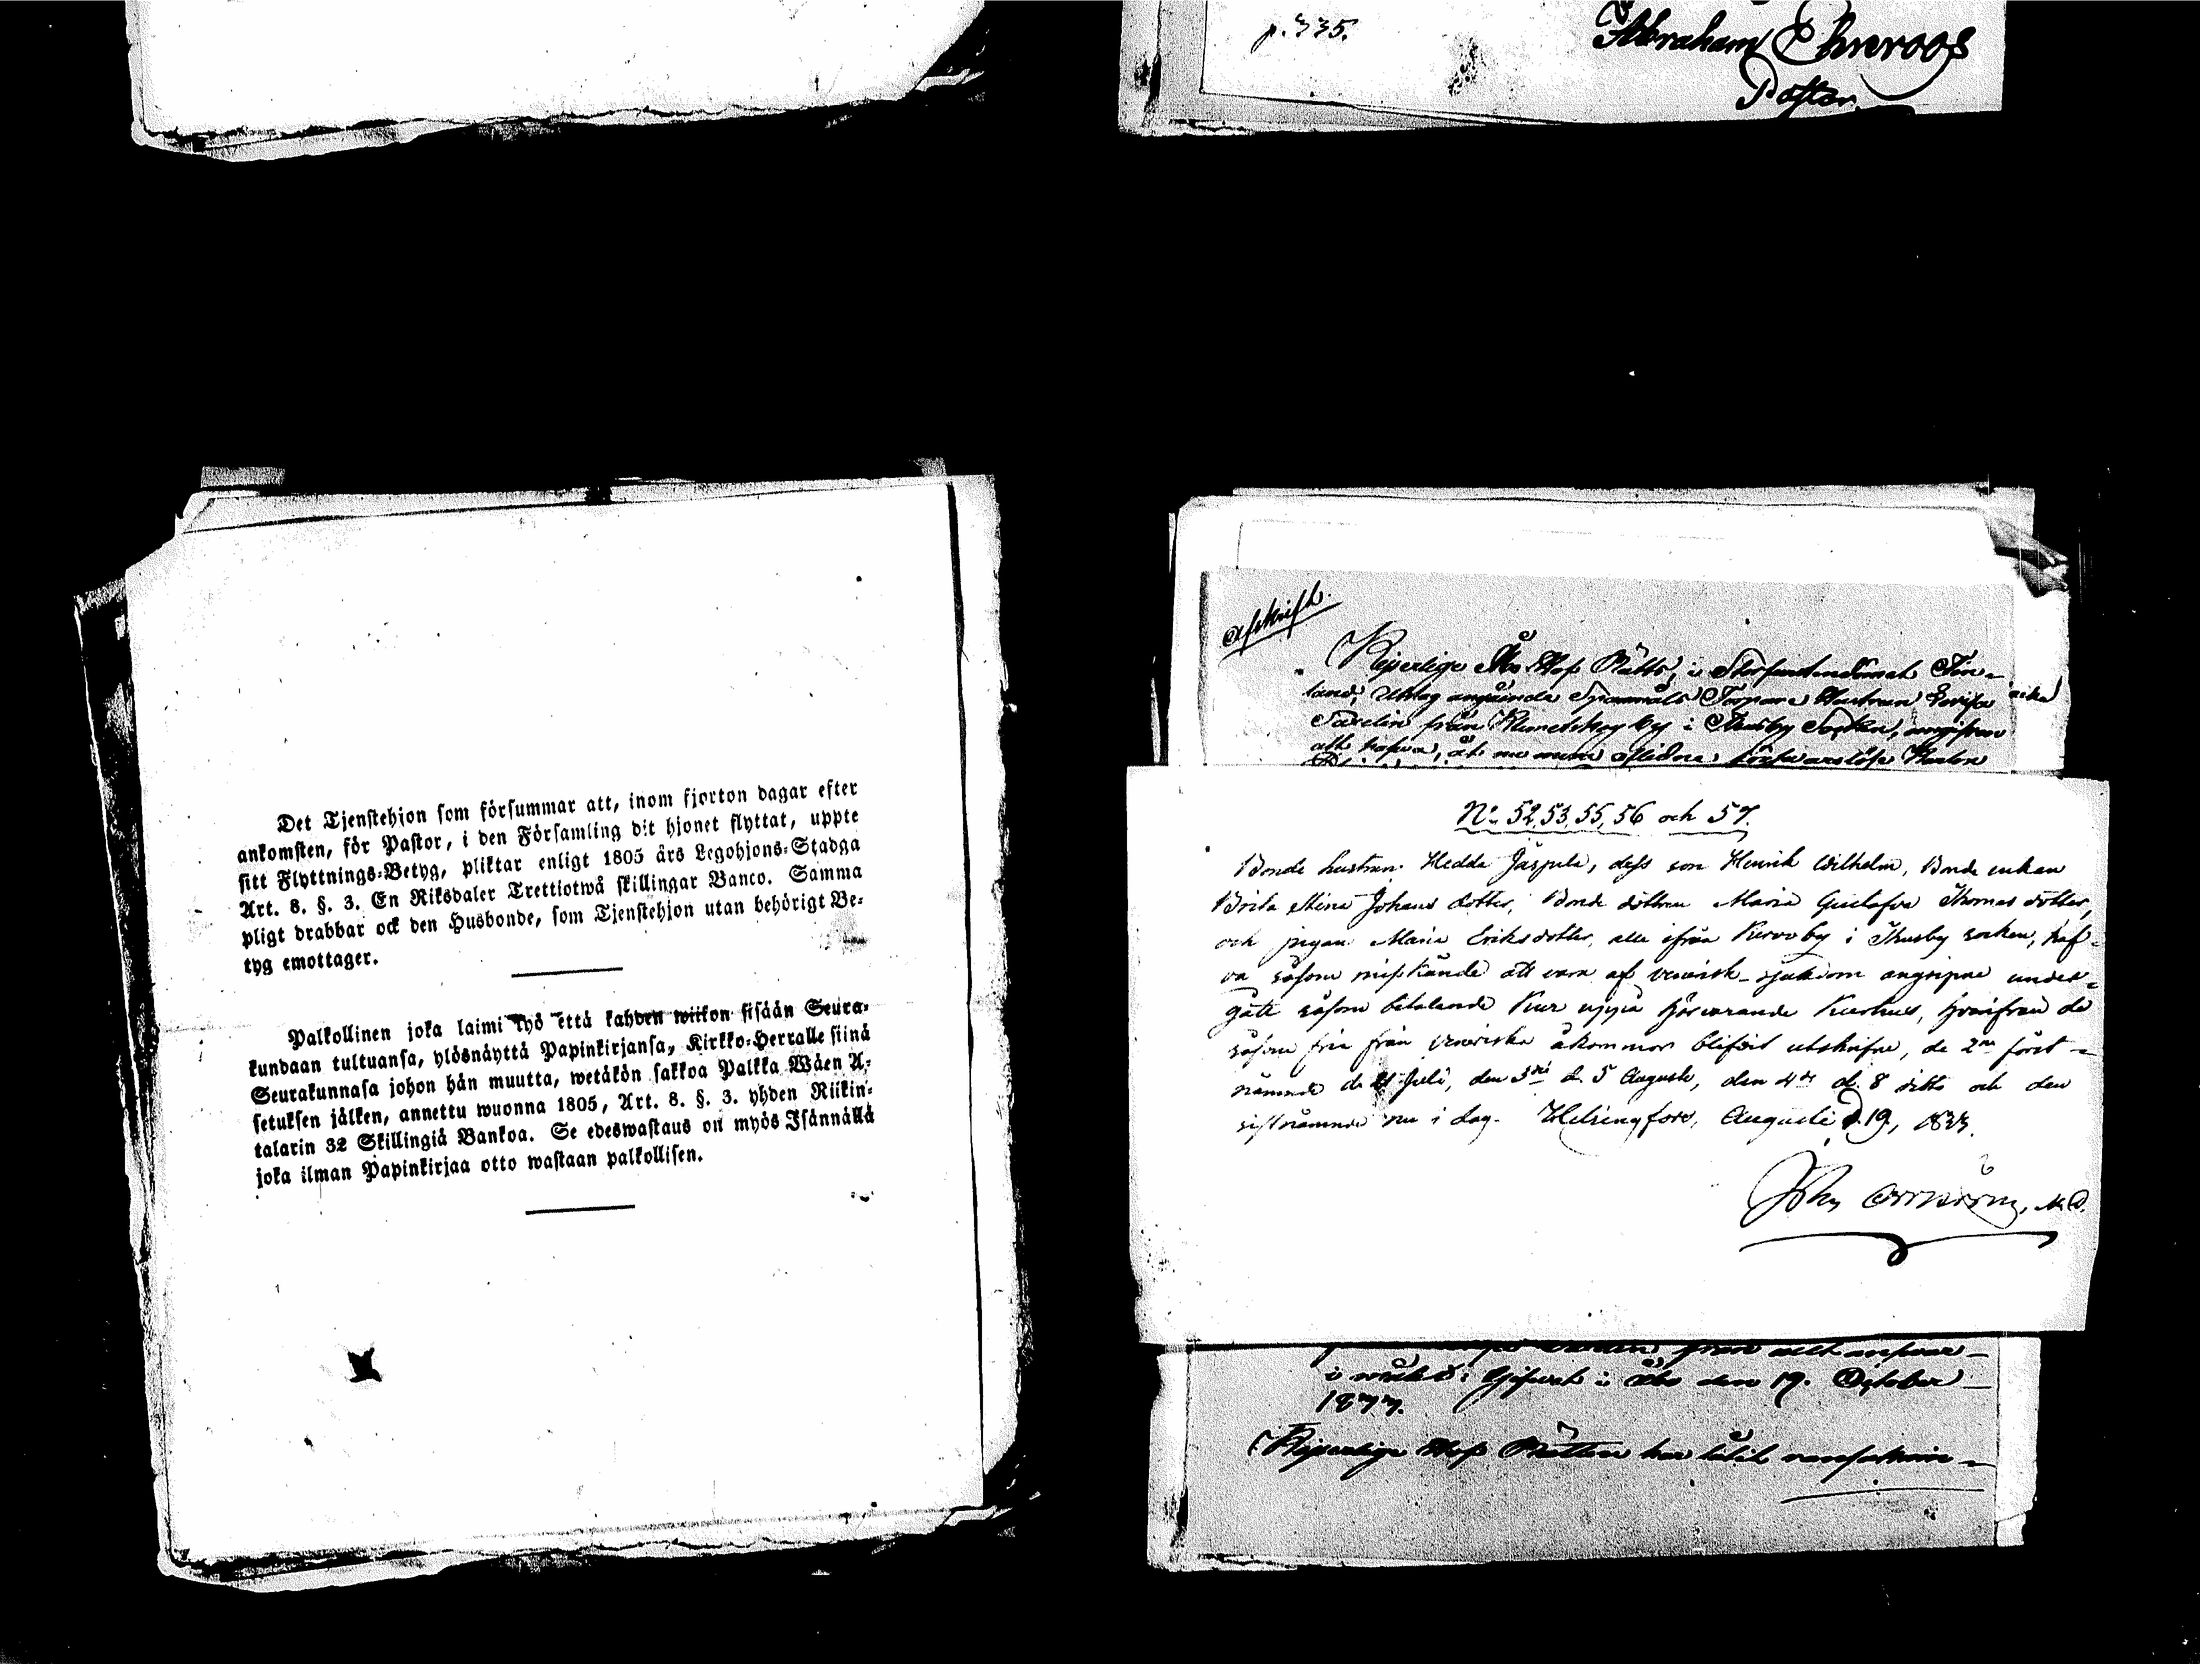 p. 335.
Abraham Ehnroos
Pastor.
Det Tjenstehjon som försummar att, inom fjorton dagar efter
ankomsten, för Pastor, i den Församling dit hjonet flyttat, uppte
sitt Flyttnings-Betyg, pliktar enligt 1805 års Legohjons-Stadga
Art. 8. §. 3. En Riksdaler Trettiotwå skillingar Banco. Samma
pligt drabbar ock den Husbonde, som Tjenstehjon utan behörigt Be-
tyg emottager.
Palkollinen joka laimi lyö että kahden wiikon sisään Seura-
kundaan tultuansa, ylösnäyttä Papinkirjansa, Kirkko-Herralle siinä
Seurakunnasa johon hän muutta, wetäkön sakkoa Palkka Wäen A-
setuksen jälken, annettu wuonna 1805, Art. 8. §. 3. yhden Riikin-
talarin 32 Skillingiä Bankoa. Se edeswastaus on myös Isännällä
joka ilman Papinkirjaa otto wastaan palkollisen.
Afskrift.
Kejserlige Åbo Hof Rätts, i Storfurstendömet Fin-
land, Utslag angående Torpare Hustrun Lovisa
från by i Thusby Socken, angifven
att hafva,
No 52, 53, 55, 56 och 57.
Bonde hustrun Hedda Jäspilä, dess son Henrik Wilhelm, Bonde enkan
Brita Stina Johans dotter, Bonde dottren Maria Gustafva Thomas dotter,
och pigan Maria Eriksdotter, alla ifrån Kervo by i Thusby socken, haf-
va såsom misstänkte att vara af venerisk sjukdom angripne under-
gått såsom betalande Kur uppå härvarande Kurhus, hvarifrån de
såsom fria från veneriska åkommor blifvit utskrifne, de 2ne först-
nämnde d. 21 Juli, den 3dje d. 5 Augusti, den 4de d. 8 ditto och den
sistnämnde nu i dag. Helsingfors, Augusti d. 19, 1833.
M.D.
från allt ansvar
i målet. Gifvet i Åbo den 19. October
Kejserlige Hof Rätten har låtit